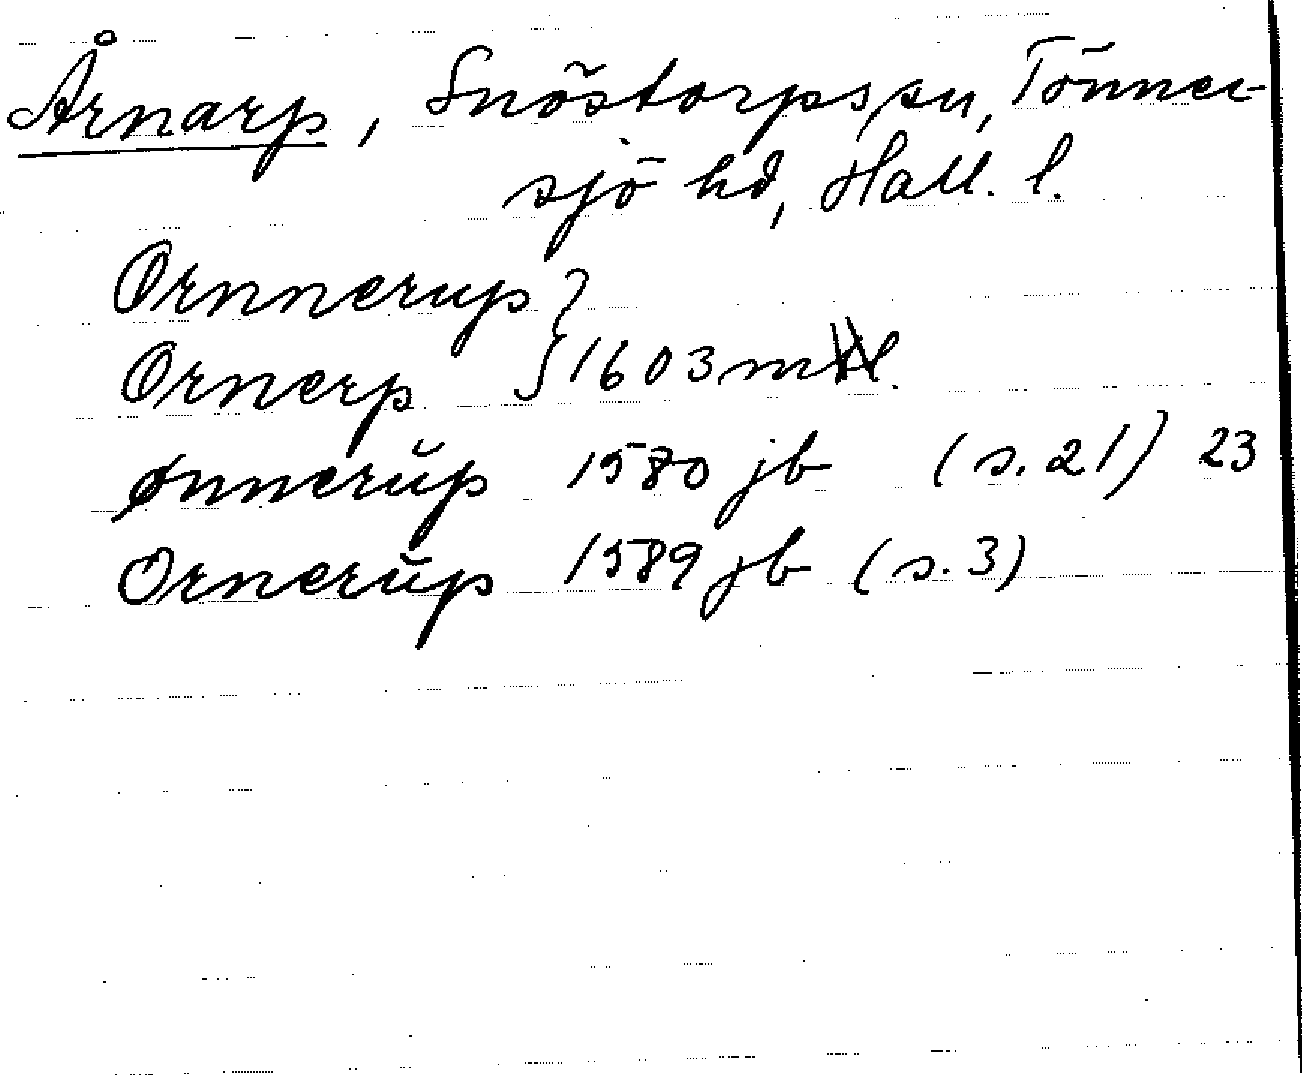 Årnarp, Snöstorps sn, Tönner-
sjö hd, Hall. l.
Ornnerup }
Ornerp } 1603 m l.
Ønnerŭp 1580 jb (s. 21) 23
Ornerŭp 1589 jb (s. 3)